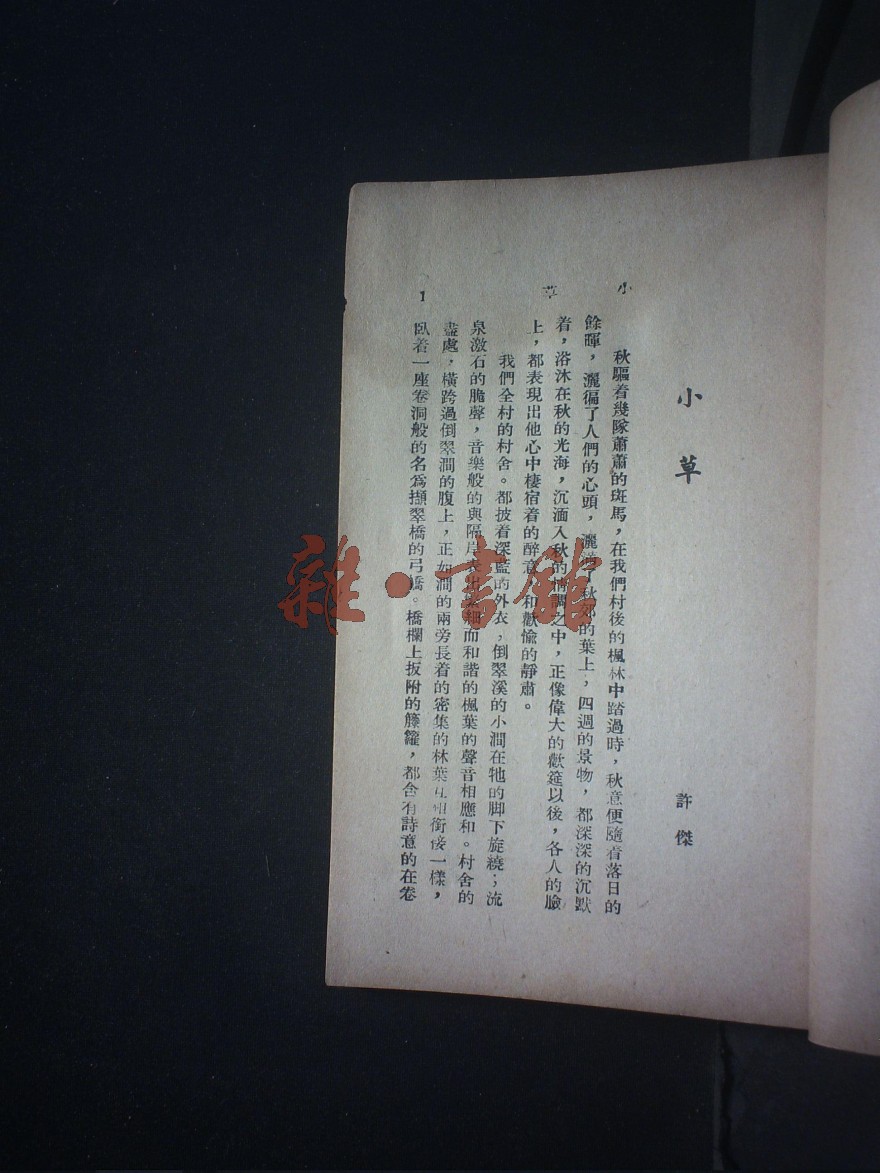 小草
許傑
小草
秋驅着幾隊蕭蕭的斑馬，在我們村後的楓林中踏過時，秋意便隨着落日的
餘暉，灑徧了人們的心頭，灑滿了秋郊的葉上，四週的景物，都深深的沉默
着，浴沐在秋的光海，沉湎入秋的情調之中，正像偉大的歡筵以後，各人的臉
上，都表現出他心中棲宿着的醉意，和歡愉的靜肅。
我們全村的村舍。都披着深藍的外衣，倒翠溪的小澗在牠的脚下旋繞；流
泉激石的脆聲，音樂般的與隔岸表出柔細而和諧的楓葉的聲音相應和。村舍的
盡處，橫跨過倒翠澗的腹上，正如澗的兩旁長着的密集的林葉互相銜接一樣，
臥着一座卷洞般的名爲擷翠橋的弓橋。橋欄上扳附的籐籮，都含有詩意的在卷
1
雜·書館